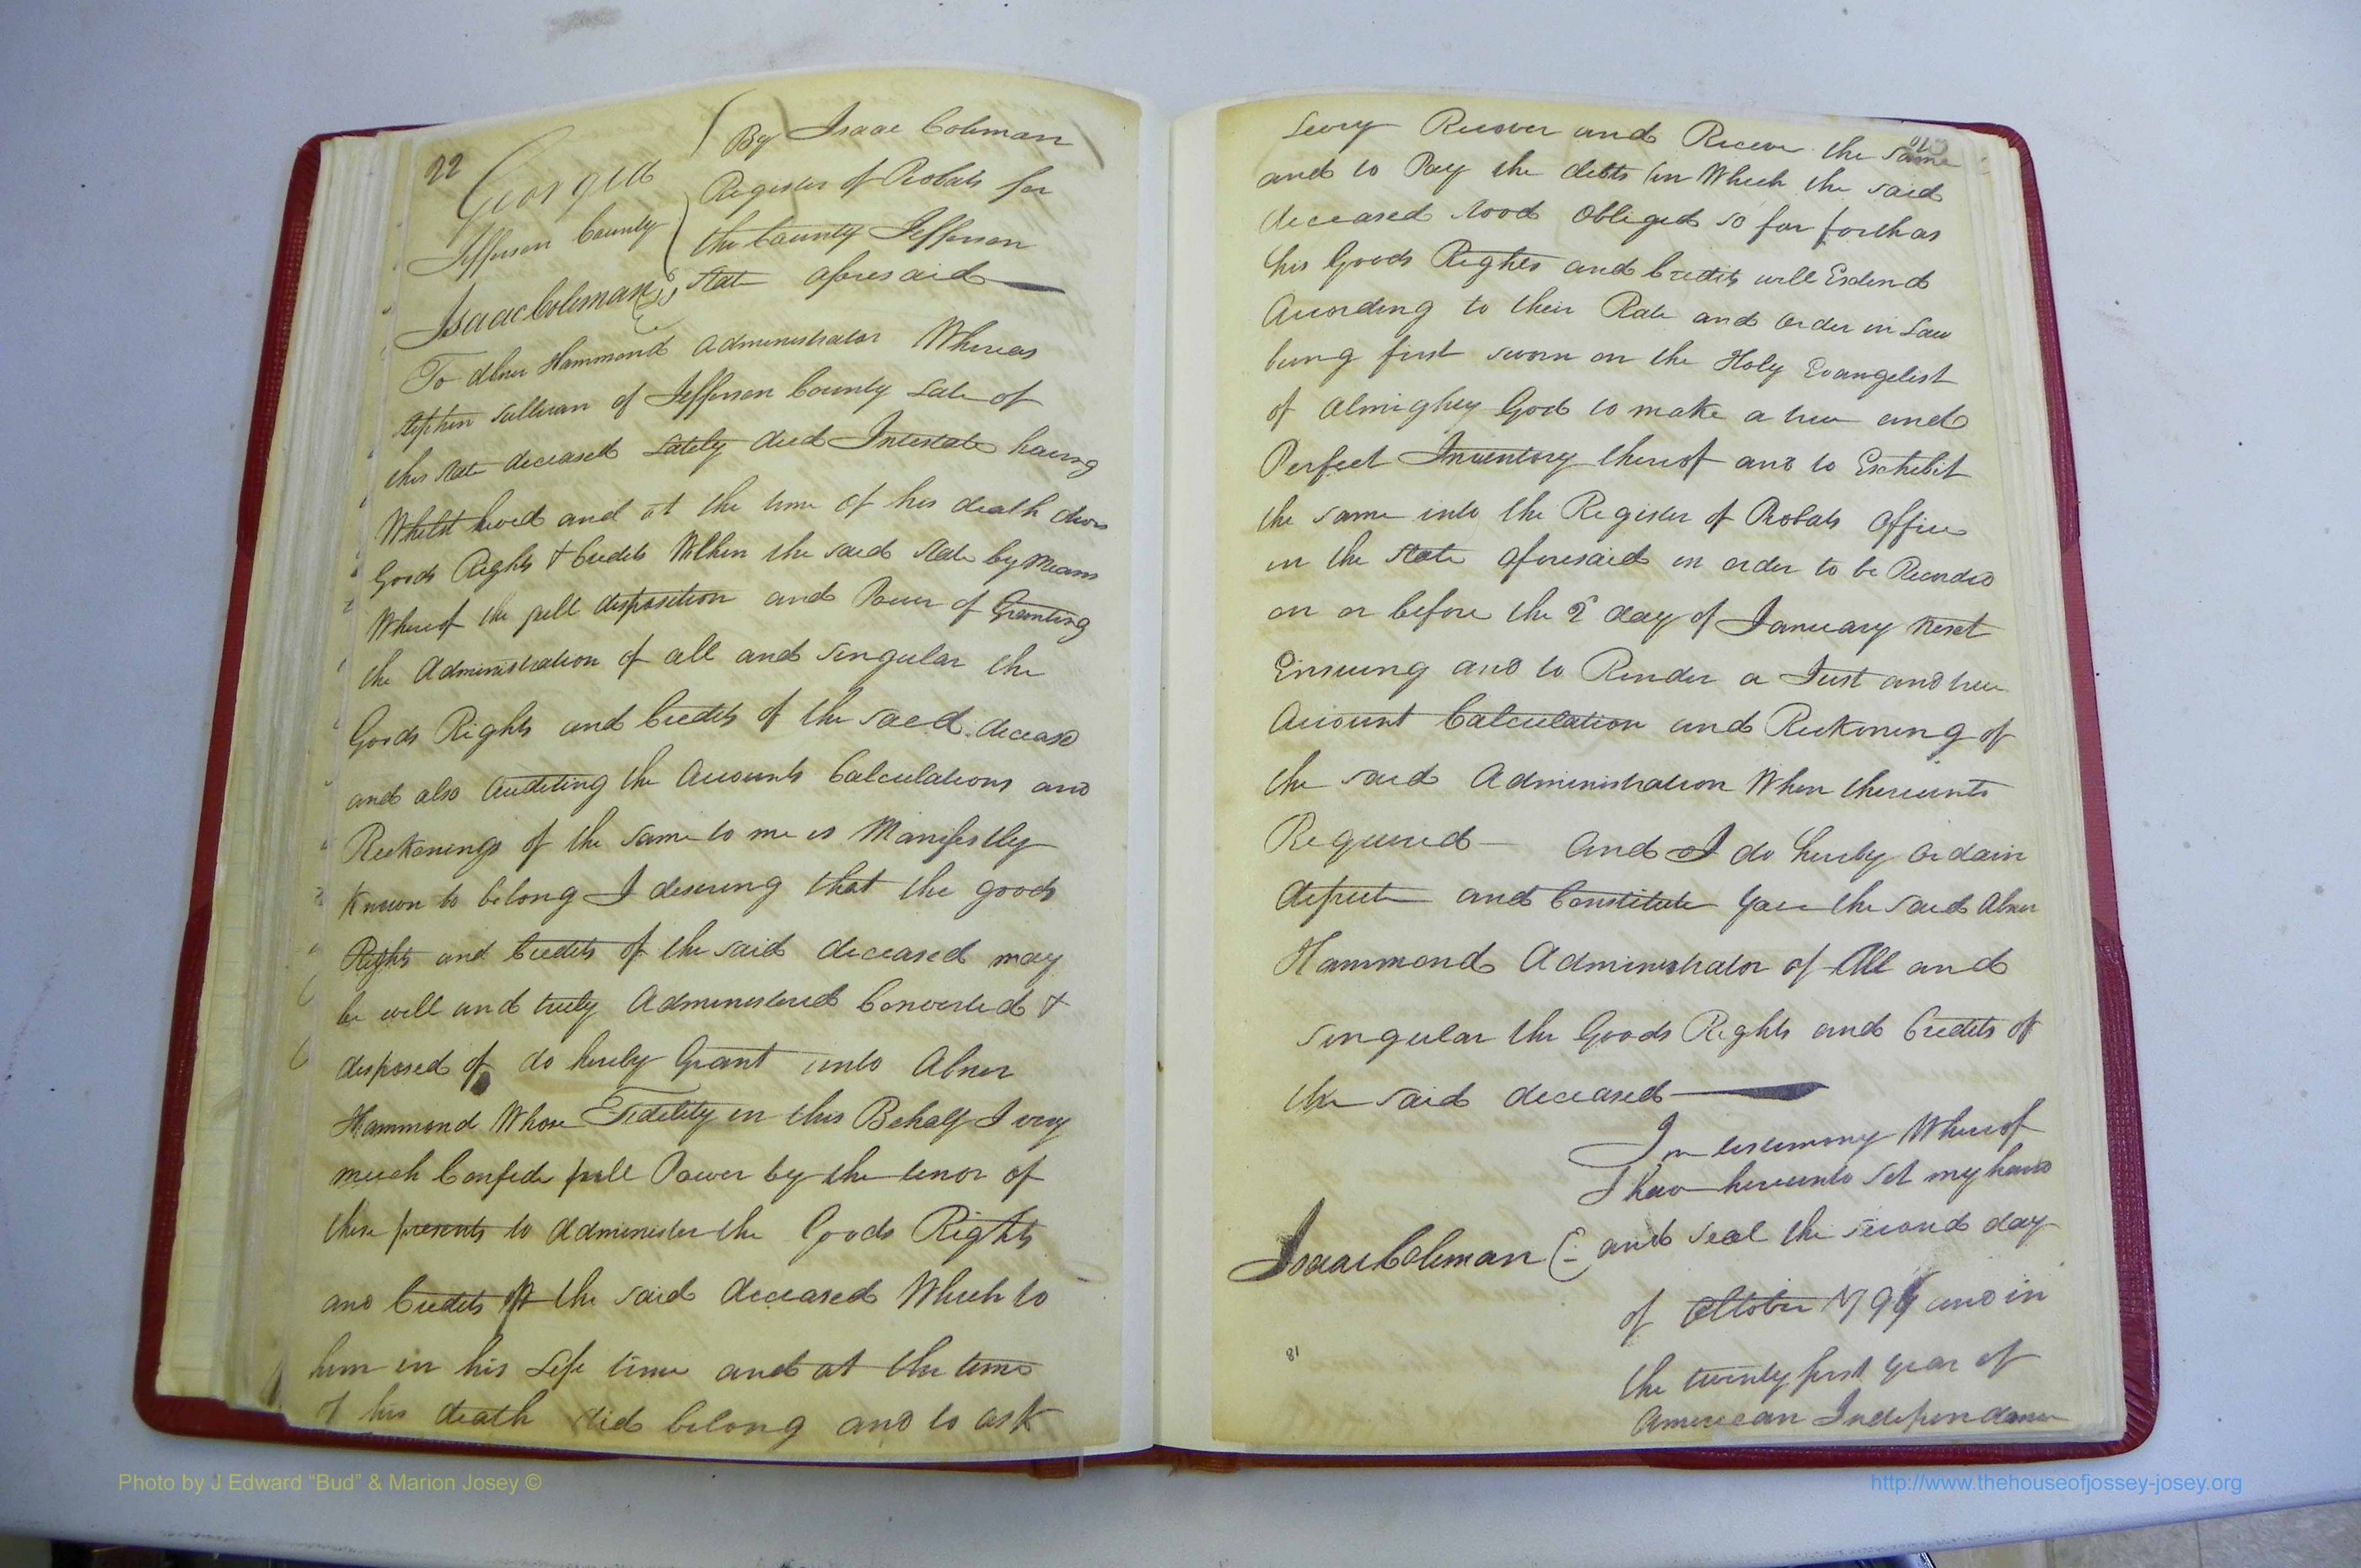 22
Georgia
Jefferson County
By Isaac Coleman
Register of Probats for
the County Jefferson
State aforesaid
Isaac Coleman
To Abner Hammond Administrator Whereas
Stephen Sullivan of Jefferson County Late of
this State deceased Lately died Intestate having
Whilst lived and at the time of his death divers
Goods Rights & Credits Within the said State by Means
Whereof the full disposition and Power of Granting
the Administration of all and Singular the
Goods Rights and Credits of the said deceasd
and also Auditing the Accounts Calculations and
Reckonings of the Same to me is Manifestly
Known to belong I desireing that the goods
Rights and Credits of the said deceased may
be well and truly Administered Converted &
disposed of do hereby Grant unto Abner
Hammond Whose Fidelity in this Behalf I very
much Confide full Power by the tenor of
these presents to Administer the Goods Rights
and Credits of the said deceased Which to
him in his Life time and at the time
of his death did belong and to ask
Levy Recover and Receive the Same
and to Pay the debts in Which the said
deceased Stood Obliged so far forth as
his Goods Rights and Credits will Extend
According to their Rate and Order in Law
being first sworn on the Holy Evangelist
of Almighty God to make a true and
Perfect Inventory thereof and to Exhibit
the same into the Register of Probats Office
in the State aforesaid in order to be Recorded
on or before the 2 day of January Next
Ensuing and to Render a Just and true
Account Calculation and Reckoning of
the said Administration When thereunto
Required — And I do hereby Ordain
deputе and Constitute you the said Abner
Hammond Administrator of All and
Singular the Goods Rights and Credits of
the said deceased
In testimony Whereof
I have hereunto Set my hand
Isaac Coleman and Seal the second day
of October 1796 and in
the twenty first year of
American Independance
81
Photo by J Edward “Bud” & Marion Josey ©
http://www.thehouseofjossey-josey.org